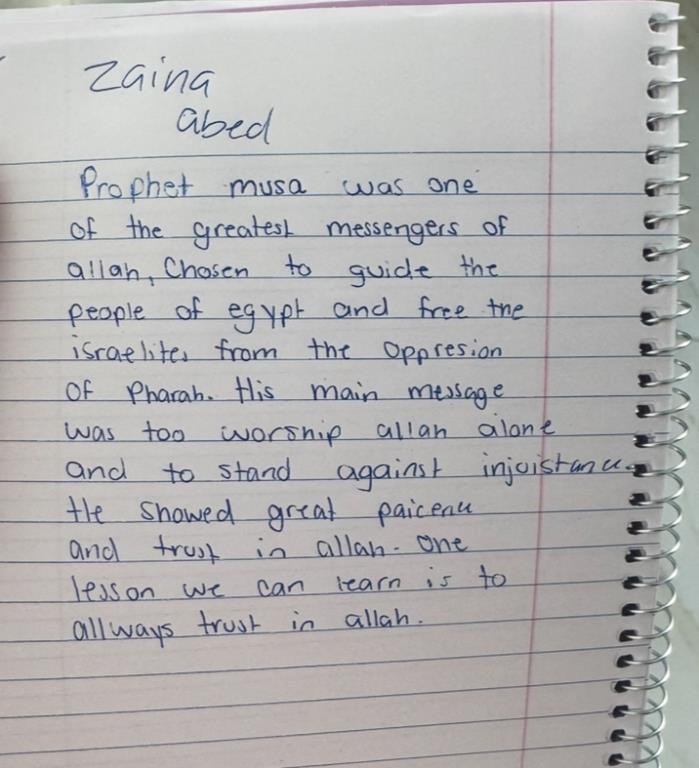 Zaina
abed
Prophet musa was one
of the greatest messengers of
allah, Chosen to guide the
people of egypt and free the
israelites from the oppresion
of Pharah. His main message
was too worship allah alone
and to stand against injuistance.
He showed great paicence
and trust in allah. One
lesson we can learn is to
allways trust in allah.